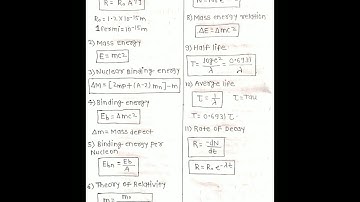 R = R₀ A^1/3
R₀ = 1.2 × 10⁻¹⁵m
1 fermi = 10⁻¹⁵m
2) Mass energy
E = mc²
3) Nuclear Binding energy
ΔM = [Zmp + (A-Z) mn] - m
4) Binding energy
Eb = Δmc²
Δm = Mass defect
5) Binding energy Per
Nucleon
Ebn = Eb/A
6) Theory of Relativity
m = m₀
8) Mass energy relation
ΔE = Δmc²
9) Half life
T = loge²/λ = 0.6931/λ
10) Averge life
τ = 1/λ τ = Tau
T = 0.6931 τ
11) Rate of Decay
R = -dN/dt
R = R₀ e^-λt